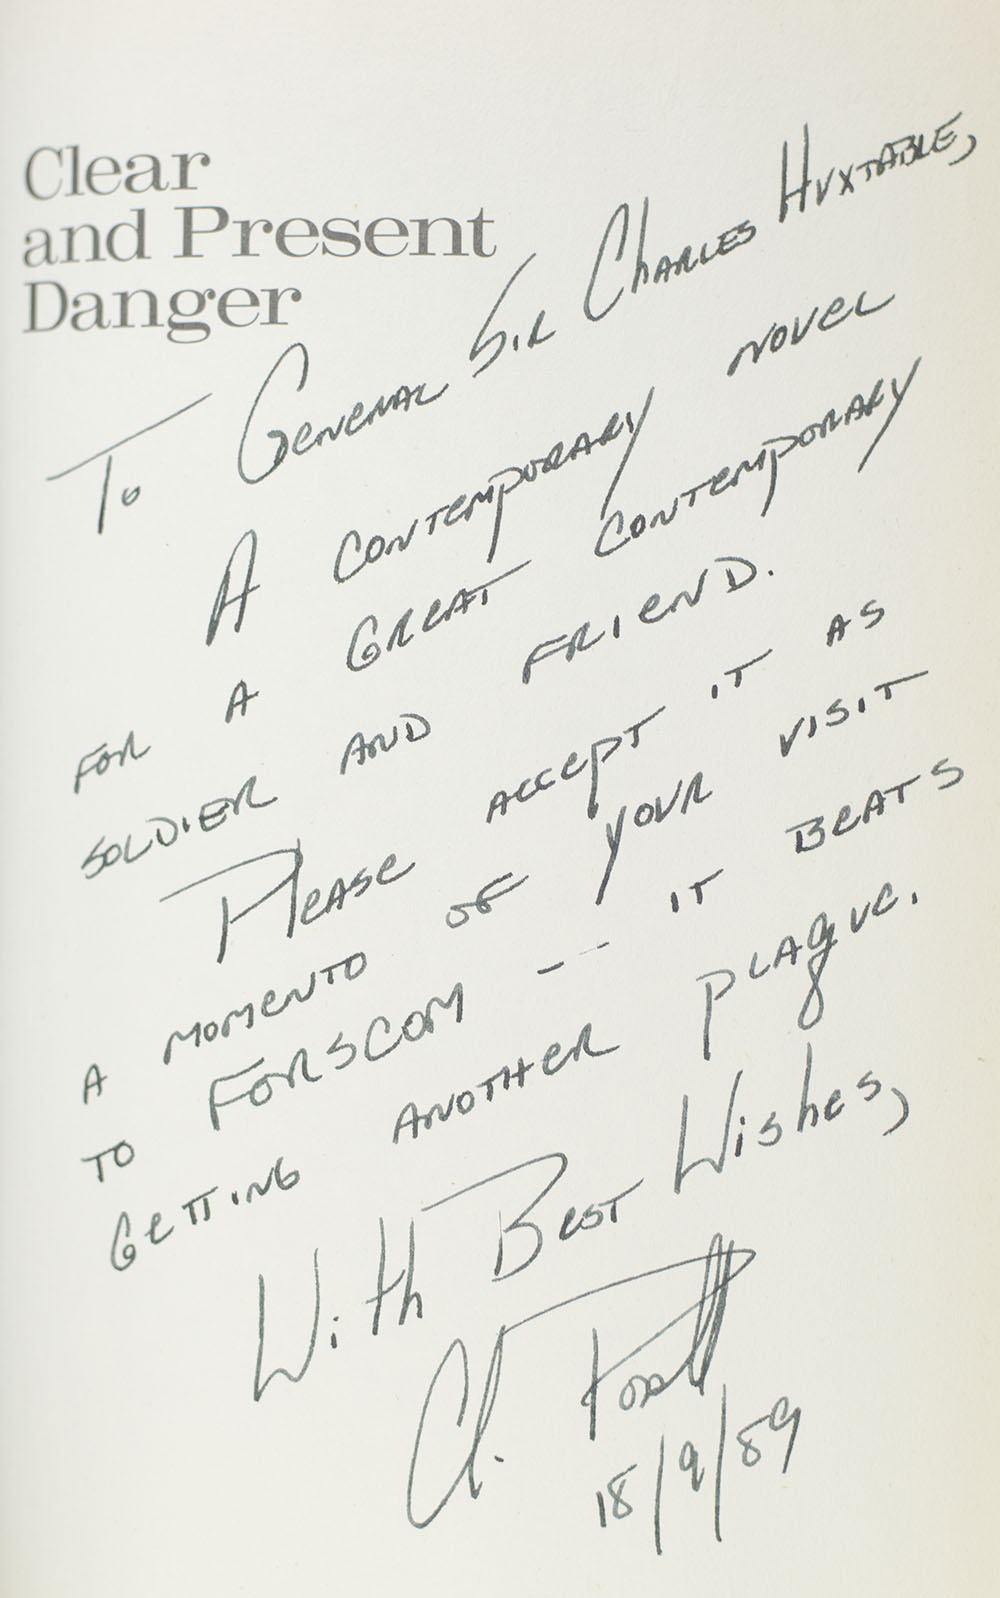 Clear
and Present
Danger
To General Sir Charles Huxtable,
A contemporary novel
for a great contemporary
soldier and friend.
Please accept it as
a momento of your visit
to FORSCOM -- it beats
getting another plaque.
With Best Wishes,
18/9/89